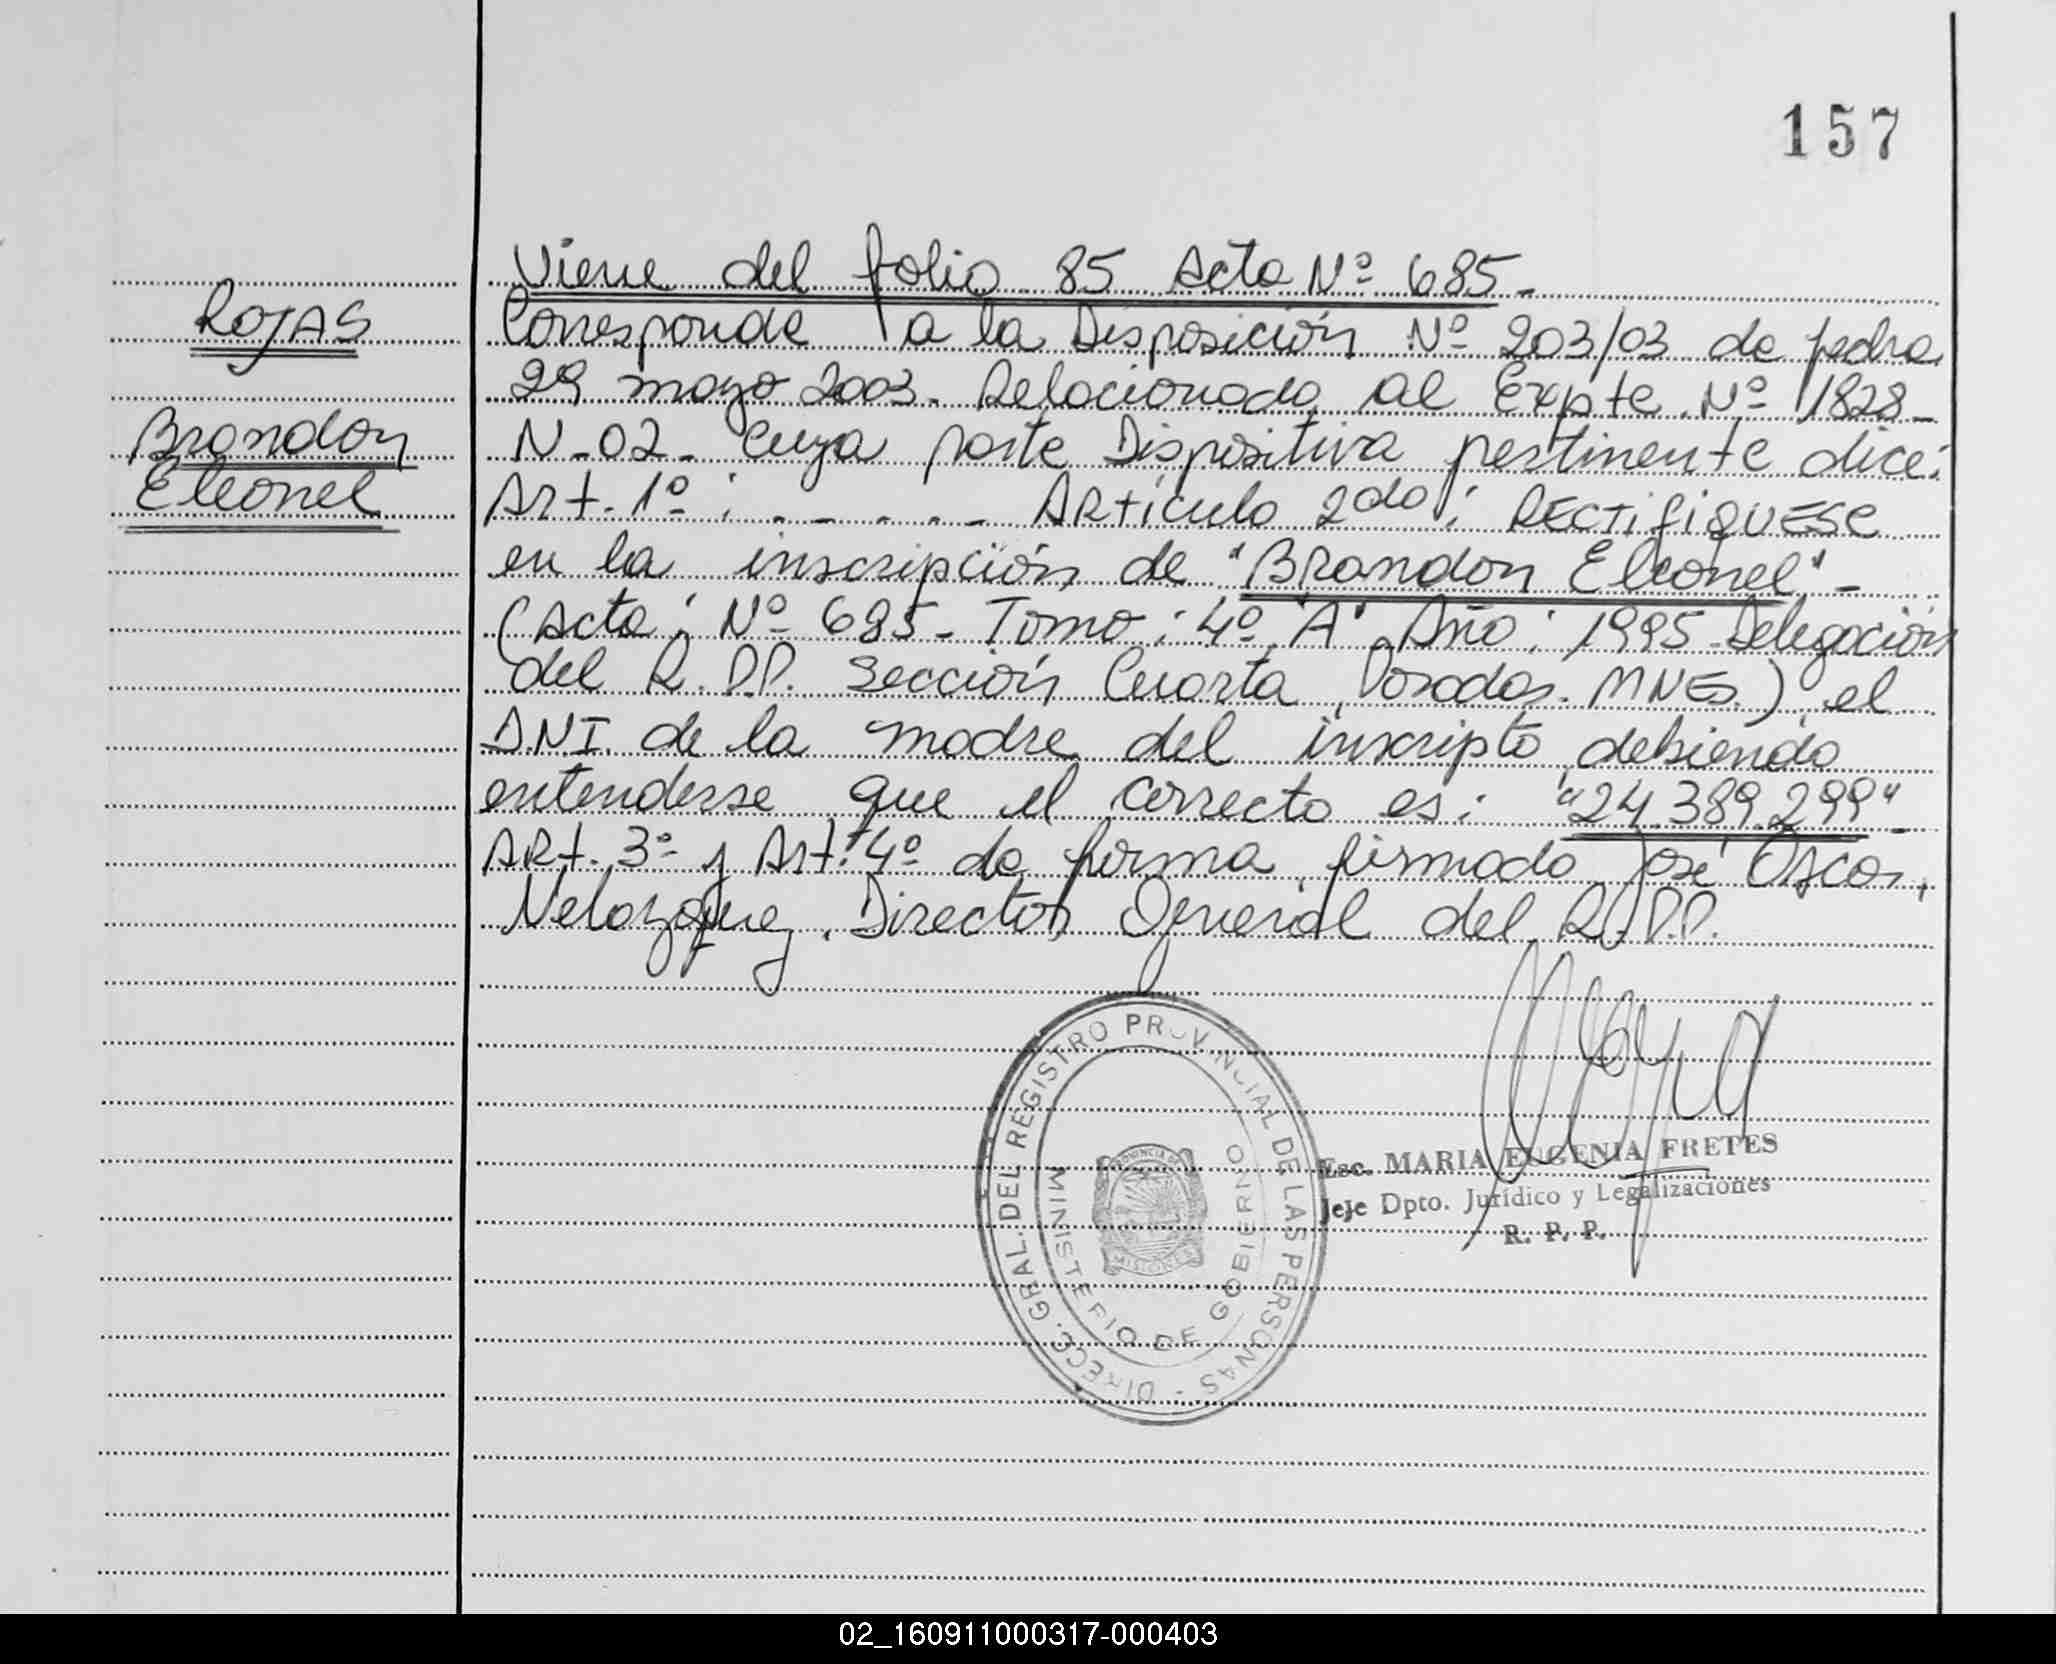 157
Viene del folio 85 Acta Nº 685-
ROJAS
Corresponde a la Disposición Nº 203/03 de fecha
29 mayo 2003. Relacionado al Expte Nº 1828-
Brandon
N-02- cuya parte Dispositiva pertinente dice:
Eleonel
Art. 1º: . - . - . - Artículo 2do: RECTIFIQUESE
en la inscripción de "Brandon Eleonel"-
(Acta: Nº 685- Tomo: 4º "A" Año: 1995 Delegación
del R.P.P. Sección Cuarta, Posadas. MNES.), el
DNI. de la madre del inscripto, debiendo
entenderse que el correcto es: "24.389.299"-
ART. 3º y Art. 4º de forma, firmado José Oscar
Velazquez. Director General del R.P.P.
DIRECC. GRAL. DEL REGISTRO PROVINCIAL DE LAS PERSONAS -
MINISTERIO DE GOBIERNO
PROVINCIA DE
MISIONES
Esc. MARIA EUGENIA FRETES
Jefe Dpto. Jurídico y Legalizaciones
R. P. P.
02_160911000317-000403